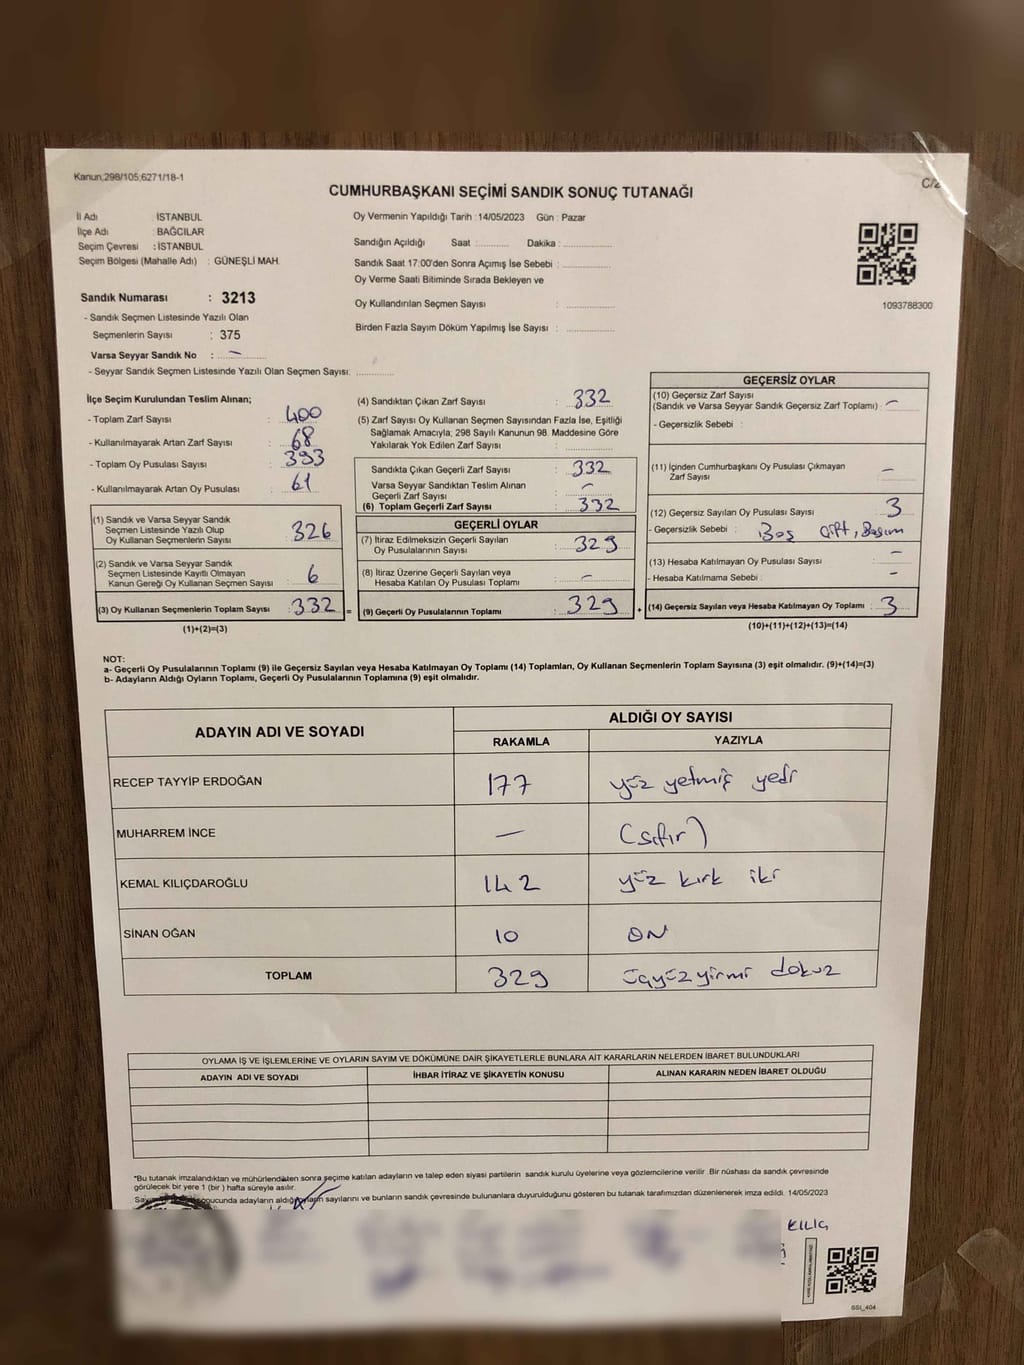 Kanun,298/105;6271/18-1
C/2
CUMHURBAŞKANI SEÇİMİ SANDIK SONUÇ TUTANAĞI
İl Adı : İSTANBUL
İlçe Adı : BAĞCILAR
Seçim Çevresi : İSTANBUL
Seçim Bölgesi (Mahalle Adı) : GÜNEŞLİ MAH.
Sandık Numarası : 3213
- Sandık Seçmen Listesinde Yazılı Olan
Seçmenlerin Sayısı : 375
Varsa Seyyar Sandık No : -
- Seyyar Sandık Seçmen Listesinde Yazılı Olan Seçmen Sayısı:
Oy Vermenin Yapıldığı Tarih : 14/05/2023 Gün : Pazar
Sandığın Açıldığı Saat : Dakika :
Sandık Saat 17:00'den Sonra Açımış İse Sebebi :
Oy Verme Saati Bitiminde Sırada Bekleyen ve
Oy Kullandırılan Seçmen Sayısı :
Birden Fazla Sayım Döküm Yapılmış İse Sayısı :
1093788300
İlçe Seçim Kurulundan Teslim Alınan;
- Toplam Zarf Sayısı : 400
- Kullanılmayarak Artan Zarf Sayısı : 68
- Toplam Oy Pusulası Sayısı : 393
- Kullanılmayarak Artan Oy Pusulası : 61
(1) Sandık ve Varsa Seyyar Sandık
Seçmen Listesinde Yazılı Olup
Oy Kullanan Seçmenlerin Sayısı : 326
(2) Sandık ve Varsa Seyyar Sandık
Seçmen Listesinde Kayıtlı Olmayan
Kanun Gereği Oy Kullanan Seçmen Sayısı : 6
(3) Oy Kullanan Seçmenlerin Toplam Sayısı : 332 =
(1)+(2)=(3)
(4) Sandıktan Çıkan Zarf Sayısı : 332
(5) Zarf Sayısı Oy Kullanan Seçmen Sayısından Fazla İse, Eşitliği
Sağlamak Amacıyla, 298 Sayılı Kanunun 98. Maddesine Göre
Yakılarak Yok Edilen Zarf Sayısı :
Sandıkta Çıkan Geçerli Zarf Sayısı : 332
Varsa Seyyar Sandıktan Teslim Alınan
Geçerli Zarf Sayısı : -
(6) Toplam Geçerli Zarf Sayısı : 332
GEÇERLİ OYLAR
(7) İtiraz Edilmeksizin Geçerli Sayılan
Oy Pusulalarının Sayısı : 329
(8) İtiraz Üzerine Geçerli Sayılan veya
Hesaba Katılan Oy Pusulası Toplamı : -
(9) Geçerli Oy Pusulalarının Toplamı : 329 +
GEÇERSİZ OYLAR
(10) Geçersiz Zarf Sayısı
(Sandık ve Varsa Seyyar Sandık Geçersiz Zarf Toplamı) : -
- Geçersizlik Sebebi :
(11) İçinden Cumhurbaşkanı Oy Pusulası Çıkmayan
Zarf Sayısı : -
(12) Geçersiz Sayılan Oy Pusulası Sayısı : 3
- Geçersizlik Sebebi : Boş Çift, Basım
(13) Hesaba Katılmayan Oy Pusulası Sayısı : -
- Hesaba Katılmama Sebebi : -
(14) Geçersiz Sayılan veya Hesaba Katılmayan Oy Toplamı : 3
(10)+(11)+(12)+(13)=(14)
NOT:
a- Geçerli Oy Pusulalarının Toplamı (9) ile Geçersiz Sayılan veya Hesaba Katılmayan Oy Toplamı (14) Toplamları, Oy Kullanan Seçmenlerin Toplam Sayısına (3) eşit olmalıdır. (9)+(14)=(3)
b- Adayların Aldığı Oyların Toplamı, Geçerli Oy Pusulalarının Toplamına (9) eşit olmalıdır.
ADAYIN ADI VE SOYADI ALDIĞI OY SAYISI
RAKAMLA YAZIYLA
RECEP TAYYİP ERDOĞAN 177 yüz yetmiş yedi
MUHARREM İNCE - (sıfır)
KEMAL KILIÇDAROĞLU 142 yüz kırk iki
SİNAN OĞAN 10 ON
TOPLAM 329 üçyüzyirmi dokuz
OYLAMA İŞ VE İŞLEMLERİNE VE OYLARIN SAYIM VE DÖKÜMÜNE DAİR ŞİKAYETLERLE BUNLARA AİT KARARLARIN NELERDEN İBARET BULUNDUKLARI
ADAYIN ADI VE SOYADI İHBAR İTİRAZ VE ŞİKAYETİN KONUSU ALINAN KARARIN NEDEN İBARET OLDUĞU
*Bu tutanak imzalandıktan ve mühürlendikten sonra seçime katılan adayların ve talep eden siyasi partilerin sandık kurulu üyelerine veya gözlemcilerine verilir .Bir nüshası da sandık çevresinde
görülecek bir yere 1 (bir ) hafta süreyle asılır.
adayların aldığı sayılarını ve bunların sandık çevresinde bulunanlara duyurulduğunu gösteren bu tutanak tarafımızdan düzenlenerek imza edildi. 14/05/2023
KILIÇ
SSI_404